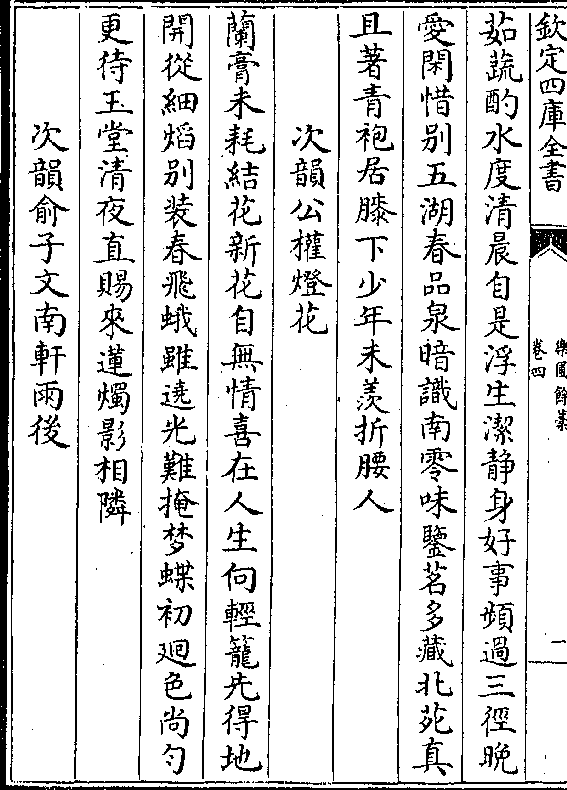 欽定四庫全書
樂圃餘藁
卷四
一
茹蔬酌水度清晨自是浮生潔静身好事頻過三徑晩
愛閑惜别五湖春品泉暗識南零味鑒茗多藏北苑真
且著青袍居膝下少年未羨折腰人
次韻公權燈花
蘭膏未耗結花新花自無情喜在人生向輕籠先得地
開從細熖别装春飛蛾雖遶光難掩梦蝶初廻色尚勻
更待玉堂清夜直賜來蓮燭影相隣
次韻俞子文南軒雨後